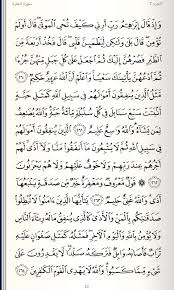 سورة البقرة
وَإِذْ قَالَ إِبْرَٰهِـۧمُ رَبِّ أَرِنِي كَيْفَ تُحْيِ ٱلْمَوْتَىٰ قَالَ أَوَلَمْ
تُؤْمِن قَالَ بَلَىٰ وَلَٰكِن لِّيَطْمَئِنَّ قَلْبِي قَالَ فَخُذْ أَرْبَعَةً مِّنَ
ٱلطَّيْرِ فَصُرْهُنَّ إِلَيْكَ ثُمَّ ٱجْعَلْ عَلَىٰ كُلِّ جَبَلٍ مِّنْهُنَّ جُزْءًا
ثُمَّ ٱدْعُهُنَّ يَأْتِينَكَ سَعْيًا وَٱعْلَمْ أَنَّ ٱللَّهَ عَزِيزٌ حَكِيمٌ ٢٦٠
مَّثَلُ ٱلَّذِينَ يُنفِقُونَ أَمْوَٰلَهُمْ فِي سَبِيلِ ٱللَّهِ كَمَثَلِ حَبَّةٍ
أَنۢبَتَتْ سَبْعَ سَنَابِلَ فِي كُلِّ سُنۢبُلَةٍ مِّا۟ئَةُ حَبَّةٍ وَٱللَّهُ يُضَٰعِفُ
لِمَن يَشَآءُ وَٱللَّهُ وَٰسِعٌ عَلِيمٌ ٢٦١ ٱلَّذِينَ يُنفِقُونَ أَمْوَٰلَهُمْ
فِي سَبِيلِ ٱللَّهِ ثُمَّ لَا يُتْبِعُونَ مَآ أَنفَقُوا۟ مَنًّا وَلَآ أَذًى لَّهُمْ
أَجْرُهُمْ عِندَ رَبِّهِمْ وَلَا خَوْفٌ عَلَيْهِمْ وَلَا هُمْ يَحْزَنُونَ
٢٦٢ قَوْلٌ مَّعْرُوفٌ وَمَغْفِرَةٌ خَيْرٌ مِّن صَدَقَةٍ يَتْبَعُهَآ
أَذًى وَٱللَّهُ غَنِيٌّ حَلِيمٌ ٢٦٣ يَٰٓأَيُّهَا ٱلَّذِينَ ءَامَنُوا۟ لَا تُبْطِلُوا۟
صَدَقَٰتِكُم بِٱلْمَنِّ وَٱلْأَذَىٰ كَٱلَّذِي يُنفِقُ مَالَهُۥ رِئَآءَ ٱلنَّاسِ
وَلَا يُؤْمِنُ بِٱللَّهِ وَٱلْيَوْمِ ٱلْءَاخِرِ فَمَثَلُهُۥ كَمَثَلِ صَفْوَانٍ عَلَيْهِ
تُرَابٌ فَأَصَابَهُۥ وَابِلٌ فَتَرَكَهُۥ صَلْدًا لَّا يَقْدِرُونَ عَلَىٰ
شَيْءٍ مِّمَّا كَسَبُوا۟ وَٱللَّهُ لَا يَهْدِي ٱلْقَوْمَ ٱلْكَٰفِرِينَ ٢٦٤